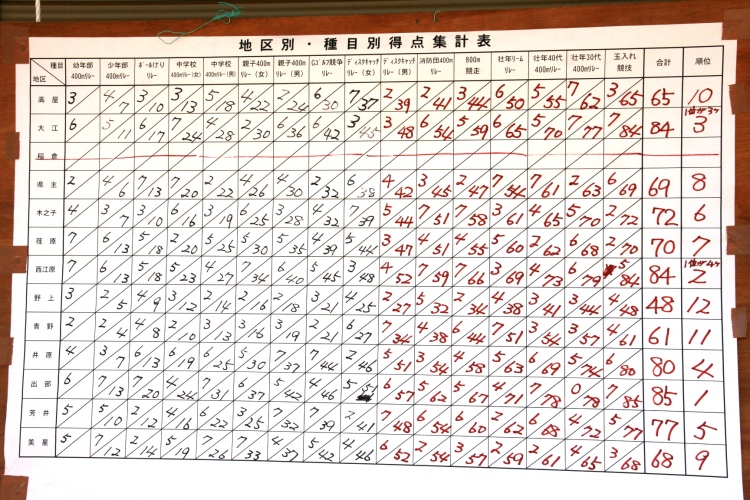 地区別・種目別得点集計表
種目 地区 幼年部400mリレー 少年部400mリレー ボール けり リレー 中学校400mリレー(女) 中学校400mリレー(男) 親子400mリレー(女) 親子400mリレー(男) Gゴルフ競争リレー ディスクキャッチリレー(女) ディスクキャッチリレー(男) 消防団400mリレー 800m競走 壮年リームリレー 壮年40代400mリレー 壮年30代400mリレー 玉入れ競技 合計 順位
高屋 3 4/7 3/10 3/13 5/18 4/22 2/24 6/30 7/37 2/39 2/41 3/44 6/50 5/55 7/62 3/65 65 10
大江 6 5/11 6/17 7/24 4/28 2/30 6/36 6/42 3/45 3/48 6/54 5/59 6/65 5/70 7/77 7/84 84 1位が3ヶ 3
稲倉
県主 2 4/6 7/13 7/20 2/22 4/26 4/30 2/32 6/38 4/42 3/45 2/47 7/54 7/61 2/63 6/69 69 8
木之子 4 3/7 3/10 6/16 3/19 6/25 3/28 4/32 7/39 5/44 7/51 7/58 3/61 4/65 5/70 2/72 72 6
荏原 7 6/13 5/18 2/20 5/25 5/30 5/35 4/39 5/44 3/47 4/51 4/55 5/60 2/62 6/68 2/70 70 7
西江原 7 6/13 5/18 5/23 4/27 7/34 6/40 5/45 3/48 4/52 7/59 7/66 3/69 4/73 6/79 5/84 84 1位が4ヶ 2
野上 3 2/5 4/9 3/12 2/14 2/16 2/18 3/21 4/25 2/27 5/32 2/34 4/38 3/41 3/44 4/48 48 12
青野 2 2/4 4/8 2/10 3/13 3/16 3/19 2/21 6/27 7/34 4/38 6/44 7/51 3/54 3/57 4/61 61 11
井原 4 3/7 6/13 6/19 6/25 5/30 7/37 7/44 2/46 5/51 3/54 4/58 5/63 6/69 5/74 6/80 80 4
出部 6 7/13 7/20 4/24 7/31 6/37 5/42 4/46 5/51 6/57 5/62 5/67 4/71 7/78 0/78 7/85 85 1
芳井 5 5/10 2/12 4/16 6/22 3/25 7/32 7/39 2/41 7/48 6/54 6/60 2/62 6/68 4/72 5/77 77 5
美星 5 7/12 2/14 5/19 7/26 7/33 4/37 5/42 4/46 6/52 2/54 3/57 2/59 2/61 4/65 3/68 68 9